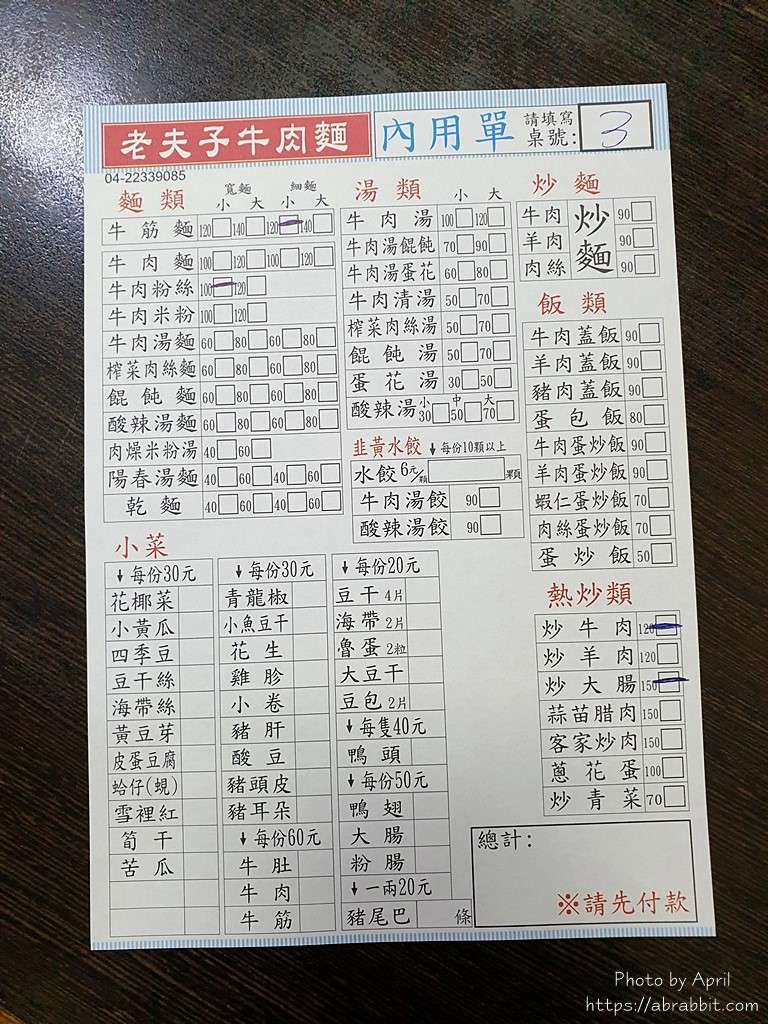 老夫子牛肉麵 內用單 請填寫桌號: 3
04-22339085
麵類 寬麵 小 大 細麵 小 大
牛筋麵 120 140 120 140
牛肉麵 100 120 100 120
牛肉粉絲 100 120
牛肉米粉 100 120
牛肉湯麵 60 80 60 80
榨菜肉絲麵 60 80 60 80
餛飩麵 60 80 60 80
酸辣湯麵 60 80 60 80
肉燥米粉湯 40 60
陽春湯麵 40 60 40 60
乾麵 40 60 40 60
湯類 小 大
牛肉湯 100 120
牛肉湯餛飩 70 90
牛肉湯蛋花 60 80
牛肉清湯 50 70
榨菜肉絲湯 50 70
餛飩湯 50 70
蛋花湯 30 50
酸辣湯 小30 中50 大70
韭黃水餃 ↓每份10顆以上
水餃 6元/顆 顆
牛肉湯餃 90
酸辣湯餃 90
炒麵
牛肉 炒麵 90
羊肉 90
肉絲 90
飯類
牛肉蓋飯 90
羊肉蓋飯 90
豬肉蓋飯 90
蛋包飯 80
牛肉蛋炒飯 90
羊肉蛋炒飯 90
蝦仁蛋炒飯 70
肉絲蛋炒飯 70
蛋炒飯 50
熱炒類
炒牛肉 120
炒羊肉 120
炒大腸 150
蒜苗腊肉 150
客家炒肉 150
蔥花蛋 100
炒青菜 70
小菜
↓每份30元
花椰菜
小黃瓜
四季豆
豆干絲
海帶絲
黃豆芽
皮蛋豆腐
蛤仔(蜆)
雪裡紅
筍干
苦瓜
↓每份30元
青龍椒
小魚豆干
花生
雞胗
小卷
豬肝
酸豆
豬頭皮
豬耳朵
↓每份60元
牛肚
牛肉
牛筋
↓每份20元
豆干 4片
海帶 2片
魯蛋 2粒
大豆干
豆包 2片
↓每隻40元
鴨頭
↓每份50元
鴨翅
大腸
粉腸
↓一兩20元
豬尾巴 條
總計:
※請先付款
Photo by April
https://abrabbit.com